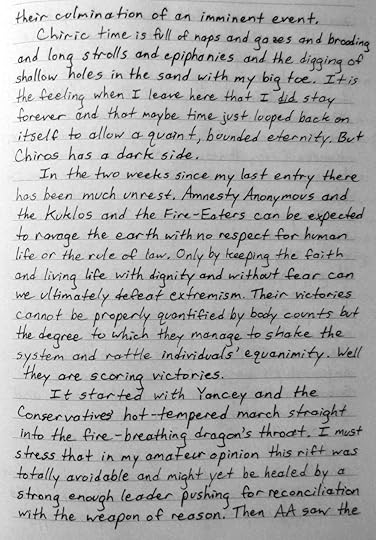 their culmination of an imminent event.
Chiric time is full of naps and gazes and brooding
and long strolls and epiphanies and the digging of
shallow holes in the sand with my big toe. It is
the feeling when I leave here that I did stay
forever and that maybe time just looped back on
itself to allow a quaint, bounded eternity. But
Chiros has a dark side.
In the two weeks since my last entry there
has been much unrest. Amnesty Anonymous and
the Kuklos and the Fire-Eaters can be expected
to ravage the earth with no respect for human
life or the rule of law. Only by keeping the faith
and living life with dignity and without fear can
we ultimately defeat extremism. Their victories
cannot be properly quantified by body counts but
the degree to which they manage to shake the
system and rattle individuals' equanimity. Well
they are scoring victories.
It started with Yancey and the
Conservatives' hot-tempered march straight
into the fire-breathing dragon's throat. I must
stress that in my amateur opinion this rift was
totally avoidable and might yet be healed by a
strong enough leader pushing for reconciliation
with the weapon of reason. Then AA saw the